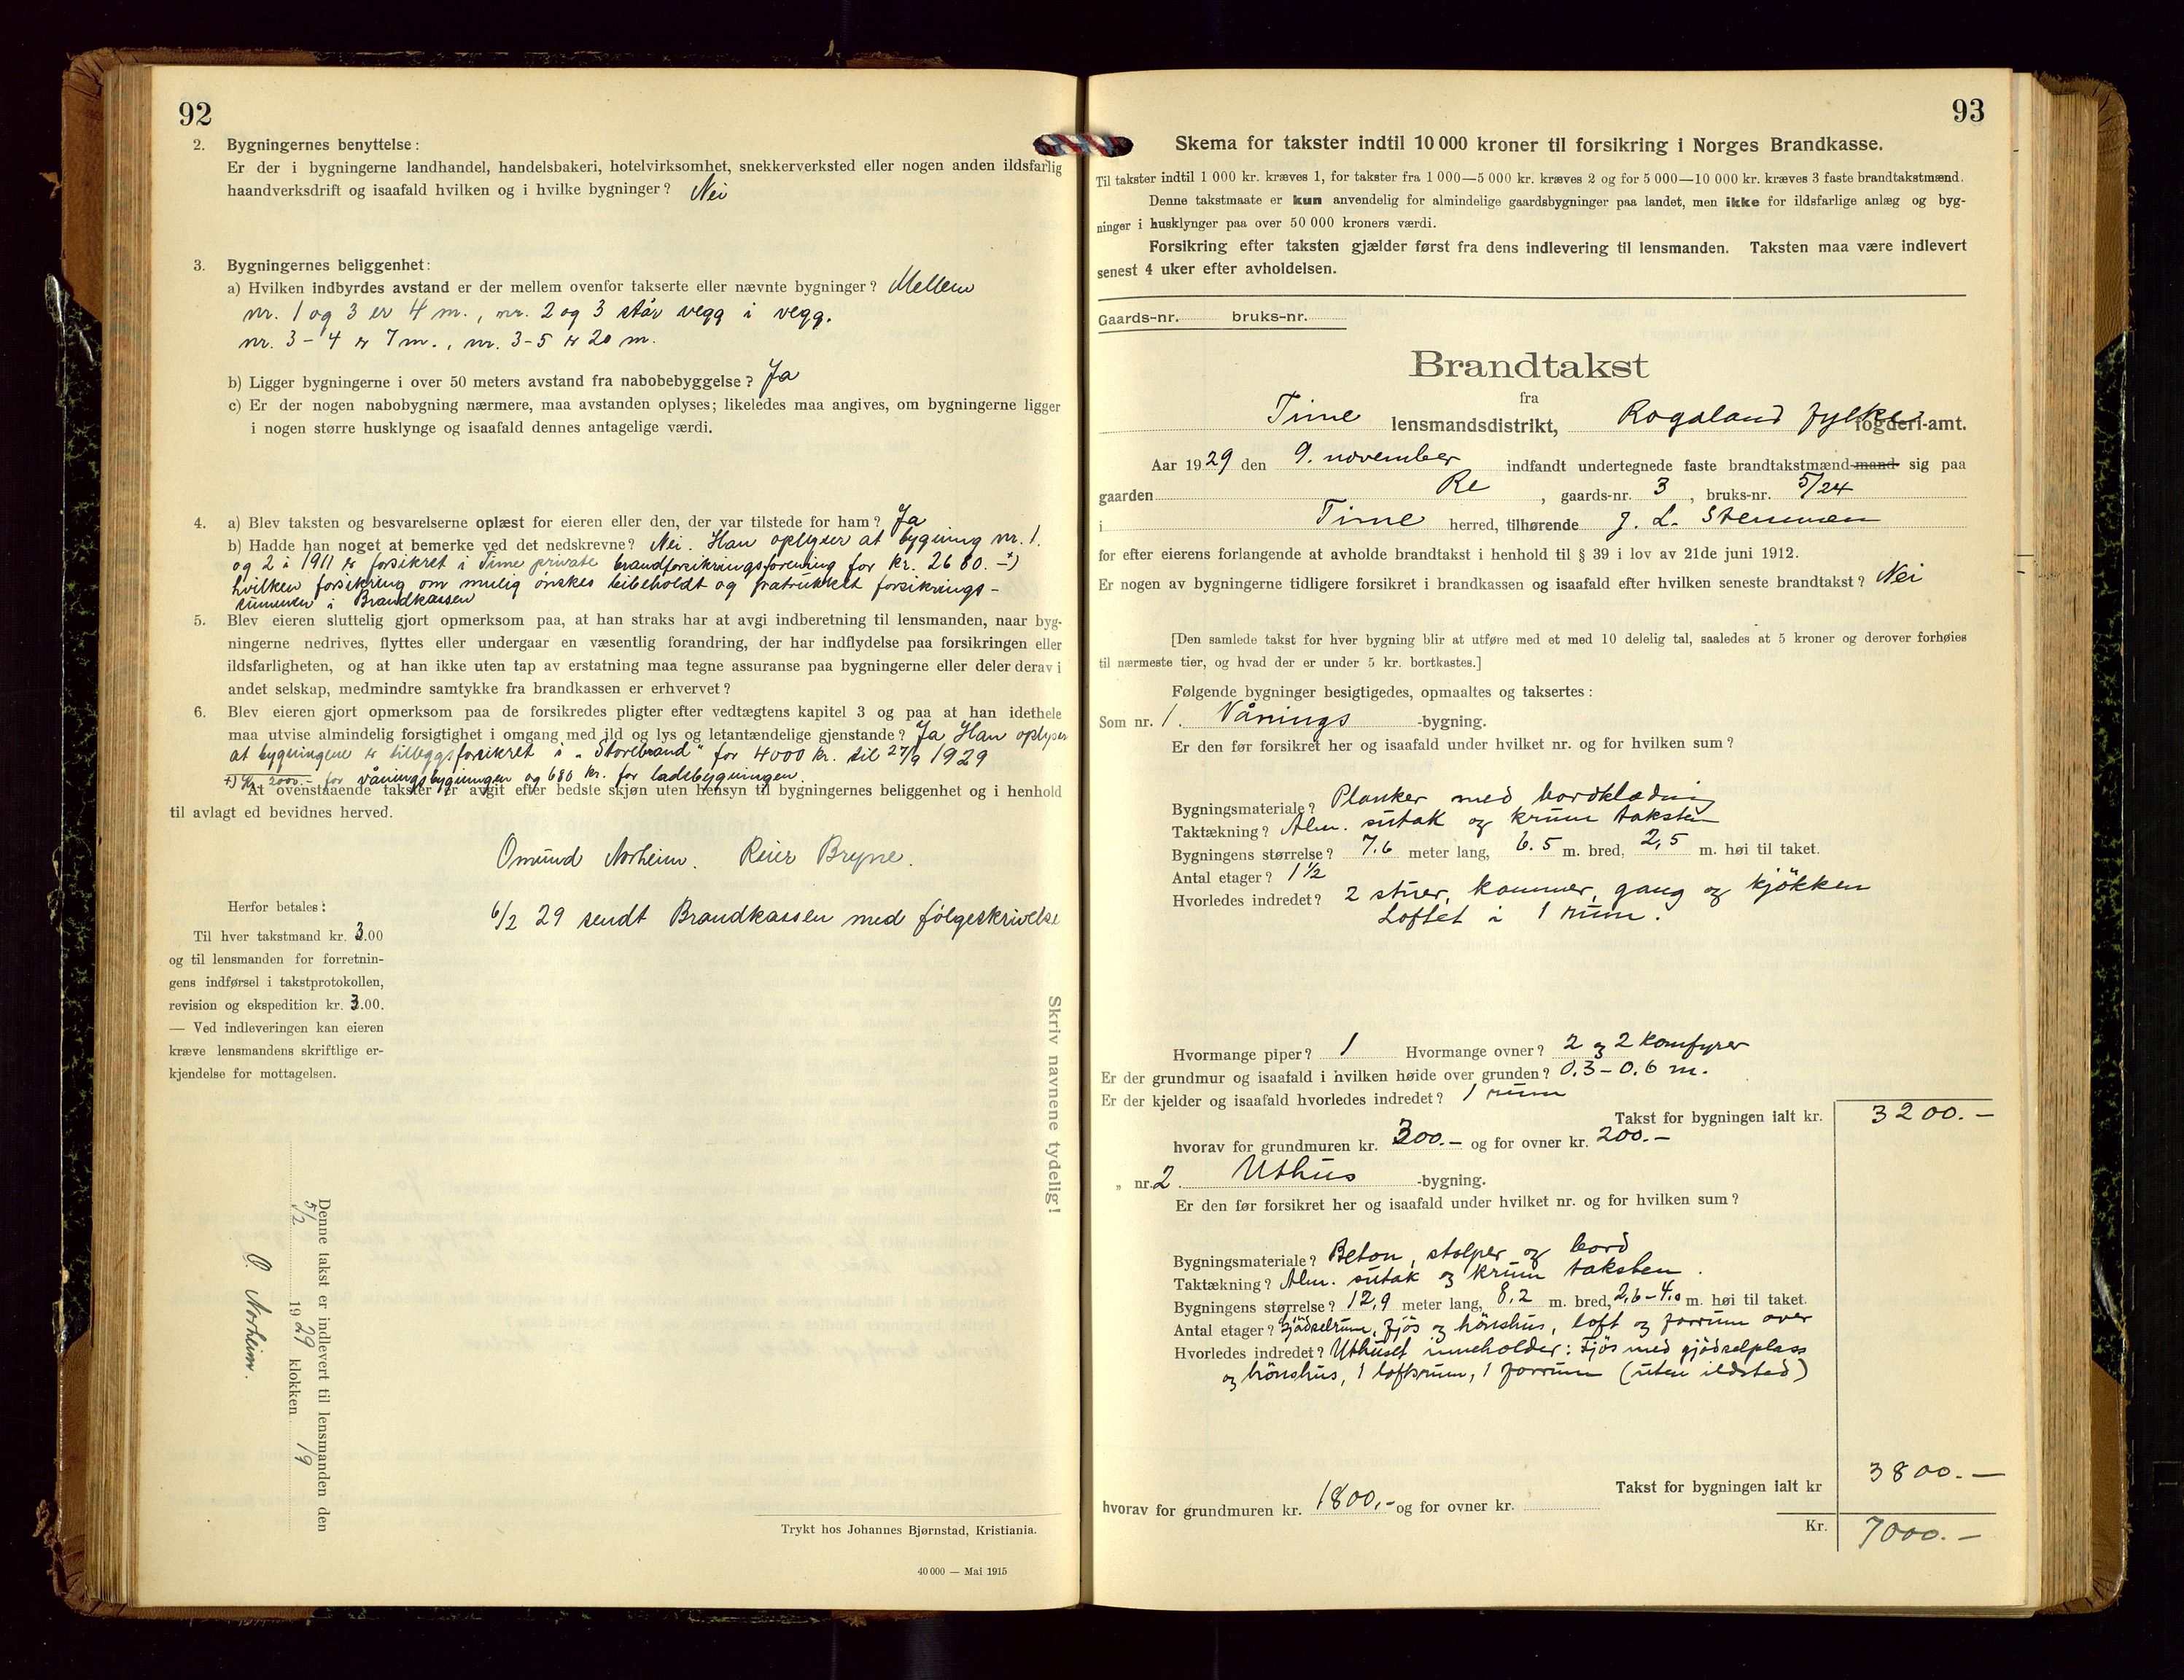 92
2. Bygningernes benyttelse:
Er der i bygningerne landhandel, handelsbakeri, hotelvirksomhet, snekkerverksted eller nogen anden ildsfarlig
haandverksdrift og isaafald hvilken og i hvilke bygninger? Nei
3. Bygningernes beliggenhet:
a) Hvilken indbyrdes avstand er der mellem ovenfor takserte eller nævnte bygninger? Mellem
nr. 1 og 3 er 4 m., nr. 2 og 3 står vegg i vegg.
nr. 3-4 er 7 m., nr. 3-5 er 20 m.
b) Ligger bygningerne i over 50 meters avstand fra nabobebyggelse? Ja
c) Er der nogen nabobygning nærmere, maa avstanden oplyses; likeledes maa angives, om bygningerne ligger
i nogen større husklynge og isaafald dennes antagelige værdi.
4. a) Blev taksten og besvarelserne oplæst for eieren eller den, der var tilstede for ham? Ja
b) Hadde han noget at bemerke ved det nedskrevne? Nei. Han oplyser at bygning nr. 1.
og 2 i 1911 er forsikret i Time private brandforsikringsforening for kr. 2680.- +)
hvilken forsikring om mulig ønskes beibeholdt og fratrukket forsikrings-
summen i Brandkassen
5. Blev eieren sluttelig gjort opmerksom paa, at han straks har at avgi indberetning til lensmanden, naar byg-
ningerne nedrives, flyttes eller undergaar en væsentlig forandring, der har indflydelse paa forsikringen eller
ildsfarligheten, og at han ikke uten tap av erstatning maa tegne assuranse paa bygningerne eller deler derav i
andet selskap, medmindre samtykke fra brandkassen er erhvervet?
6. Blev eieren gjort opmerksom paa de forsikredes pligter efter vedtægtens kapitel 3 og paa at han idethele
maa utvise almindelig forsigtighet i omgang med ild og lys og letantændelige gjenstande? Ja Han oplyser
at bygningene er tilleggsforsikret i „Storebrand" for 4000 kr. til 27/9 1929
+) Kr. 2000.- for våningsbygningen og 680 kr. for ladebygningen.
At ovenstaaende takster er avgit efter bedste skjøn uten hensyn til bygningernes beliggenhet og i henhold
til avlagt ed bevidnes herved.
Omund Norheim. Reier Bryne.
6/2 29 sendt Brandkassen med følgeskrivelse
Herfor betales:
Til hver takstmand kr. 3.00
og til lensmanden for forretnin-
gens indførsel i takstprotokollen,
revision og ekspedition kr. 3.00.
— Ved indleveringen kan eieren
kræve lensmandens skriftlige er-
kjendelse for mottagelsen.
Skriv navnene tydelig!
Denne takst er indlevert til lensmanden den
5/2 1929 klokken 19
O. Norheim.
Trykt hos Johannes Bjørnstad, Kristiania.
40 000 — Mai 1915
93
Skema for takster indtil 10 000 kroner til forsikring i Norges Brandkasse.
Til takster indtil 1 000 kr. kræves 1, for takster fra 1 000—5 000 kr. kræves 2 og for 5 000—10 000 kr. kræves 3 faste brandtakstmænd.
Denne takstmaate er kun anvendelig for almindelige gaardsbygninger paa landet, men ikke for ildsfarlige anlæg og byg-
ninger i husklynger paa over 50 000 kroners værdi.
Forsikring efter taksten gjælder først fra dens indlevering til lensmanden. Taksten maa være indlevert
senest 4 uker efter avholdelsen.
Gaards-nr. bruks-nr.
Brandtakst
fra
Time lensmandsdistrikt, Rogaland fylke fogderi-amt.
Aar 1929 den 9. november indfandt undertegnede faste brandtakstmænd-mand sig paa
gaarden Re, gaards-nr. 3, bruks-nr. 5/24
i Time herred, tilhørende J. L. Stemmen
for efter eierens forlangende at avholde brandtakst i henhold til § 39 i lov av 21de juni 1912.
Er nogen av bygningerne tidligere forsikret i brandkassen og isaafald efter hvilken seneste brandtakst? Nei
[Den samlede takst for hver bygning blir at utføre med et med 10 delelig tal, saaledes at 5 kroner og derover forhøies
til nærmeste tier, og hvad der er under 5 kr. bortkastes.]
Følgende bygninger besigtigedes, opmaaltes og taksertes:
Som nr. 1. Vånings -bygning.
Er den før forsikret her og isaafald under hvilket nr. og for hvilken sum?
Bygningsmateriale? Planker med bordklædning
Taktækning? Alm. sutak og krum taksten
Bygningens størrelse? 7.6 meter lang, 6.5 m. bred, 2,5 m. høi til taket.
Antal etager? 1 1/2
Hvorledes indredet? 2 stuer, kammer, gang og kjökken
Loftet i 1 rum.
Hvormange piper? 1 Hvormange ovner? 2 og 2 komfyrer
Er der grundmur og isaafald i hvilken høide over grunden? 0.3-0.6 m.
Er der kjelder og isaafald hvorledes indredet? 1 rum
Takst for bygningen ialt kr. 3200.-
hvorav for grundmuren kr. 300.- og for ovner kr. 200.-
„ nr. 2. Uthus -bygning.
Er den før forsikret her og isaafald under hvilket nr. og for hvilken sum?
Bygningsmateriale? Beton, stolper og bord
Taktækning? Alm. sutak og krum taksten.
Bygningens størrelse? 12,9 meter lang, 8,2 m. bred, 2,6-4,0 m. høi til taket.
Antal etager? Gjödselrum, fjös og hönshus, loft og forrum over
Hvorledes indredet? Uthuset inneholder: Fjös med gjödselplass
og hönshus, 1 loftsrum, 1 forrum (uten ildsted)
Takst for bygningen ialt kr 3800.-
hvorav for grundmuren kr. 1800,- og for ovner kr.
Kr. 7000.-